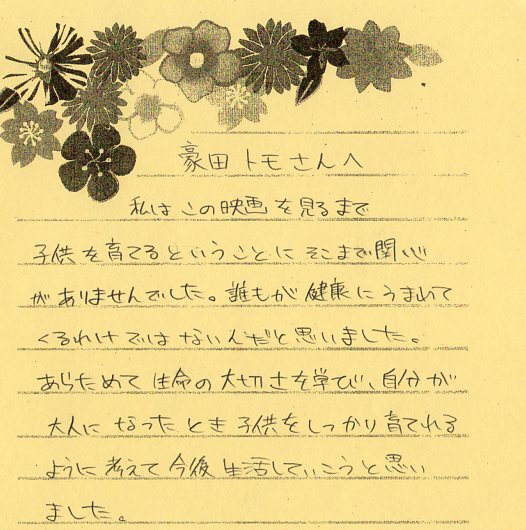 豪田トモさんへ
私はこの映画を見るまで
子供を育てるということにそこまで関心
がありませんでした。誰もが健康にうまれて
くるわけではないんだと思いました。
あらためて生命の大切さを学び、自分が
大人になったとき子供をしっかり育てれる
ように考えて今後生活していこうと思い
ました。